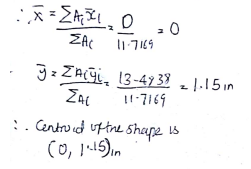 ∴ x̄ = ΣAᵢx̄ᵢ / ΣAᵢ = 0 / 11.7169 = 0
ȳ = ΣAᵢȳᵢ / ΣAᵢ = 13.4938 / 11.7169 = 1.15 in
∴ Centroid of the shape is
(0, 1.15) in